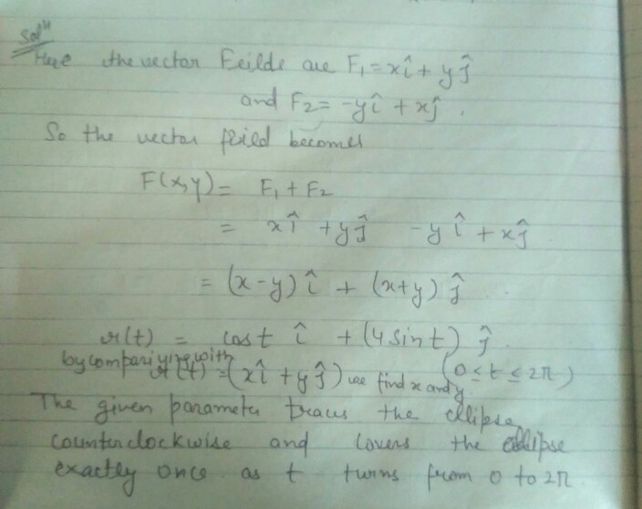 Solⁿ
Here the vector Feilds are F₁ = xî + yĵ
and F₂ = -yî + xĵ .
So the vector feild becomes
F(x,y) = F₁ + F₂
= xî + yĵ - yî + xĵ
= (x-y) î + (x+y) ĵ
r(t) = cost î + (4 sint) ĵ .
by compariying with r(t) = (xî + yĵ) we find x and y (0 ≤ t ≤ 2π)
The given parameter traces the ellipse
counterclockwise and covers the ellipse
exactly once as t turns from 0 to 2π